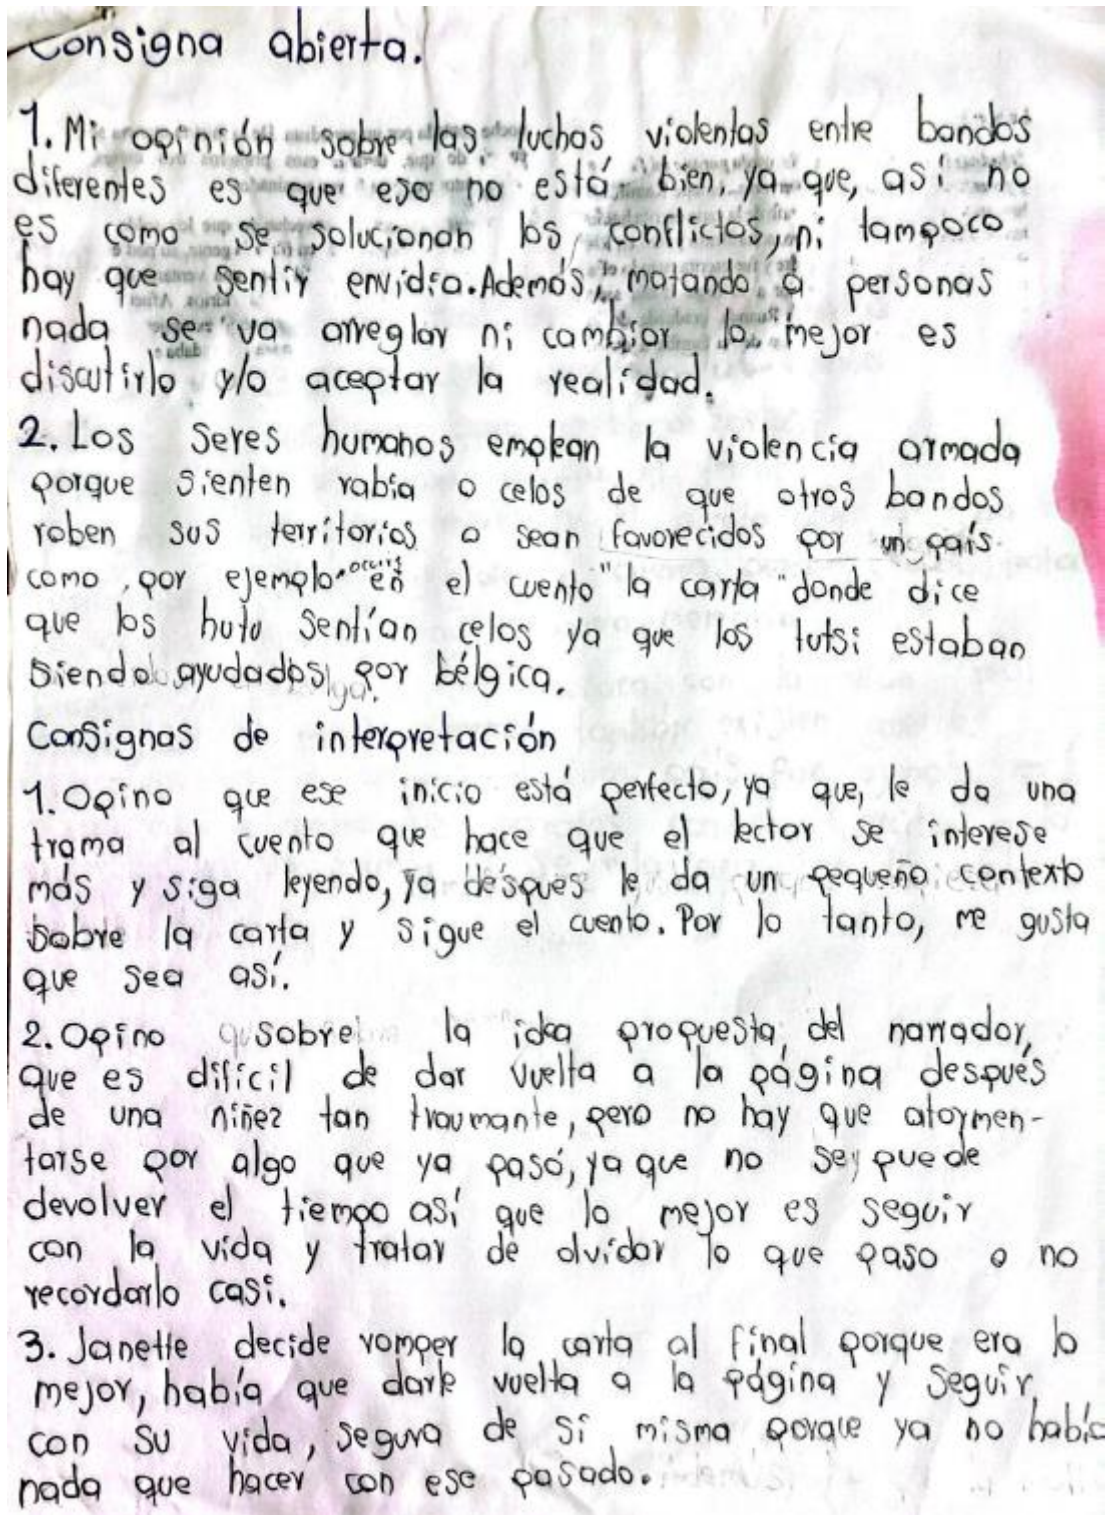 Consigna abierta.
1. Mi opinión sobre las luchas violentas entre bandos
diferentes es que eso no está bien, ya que, así no
es como se solucionan los conflictos, ni tampoco
hay que sentir envidia. Además, matando a personas
nada se va arreglar ni cambiar lo mejor es
discutirlo y/o aceptar la realidad.
2. Los seres humanos emplean la violencia armada
porque sienten rabia o celos de que otros bandos
roben sus territorios o sean favorecidos por un país
como por ejemplo ocurre en el cuento "la carta" donde dice
que los hutu sentían celos ya que los tutsi estaban
siendo ayudados por bélgica.
Consignas de interpretación
1. Opino que ese inicio está perfecto, ya que, le da una
trama al cuento que hace que el lector se interese
más y siga leyendo, ya después le da un pequeño contexto
sobre la carta y sigue el cuento. Por lo tanto, me gusta
que sea así.
2. Opino sobre la idea propuesta del narrador,
que es difícil de dar vuelta a la página después
de una niñez tan traumante, pero no hay que atormen-
tarse por algo que ya pasó, ya que no se puede
devolver el tiempo así que lo mejor es seguir
con la vida y tratar de olvidar lo que paso o no
recordarlo casi.
3. Janette decide romper la carta al final porque era lo
mejor, había que darle vuelta a la página y seguir
con su vida, segura de sí misma porque ya no había
nada que hacer con ese pasado.